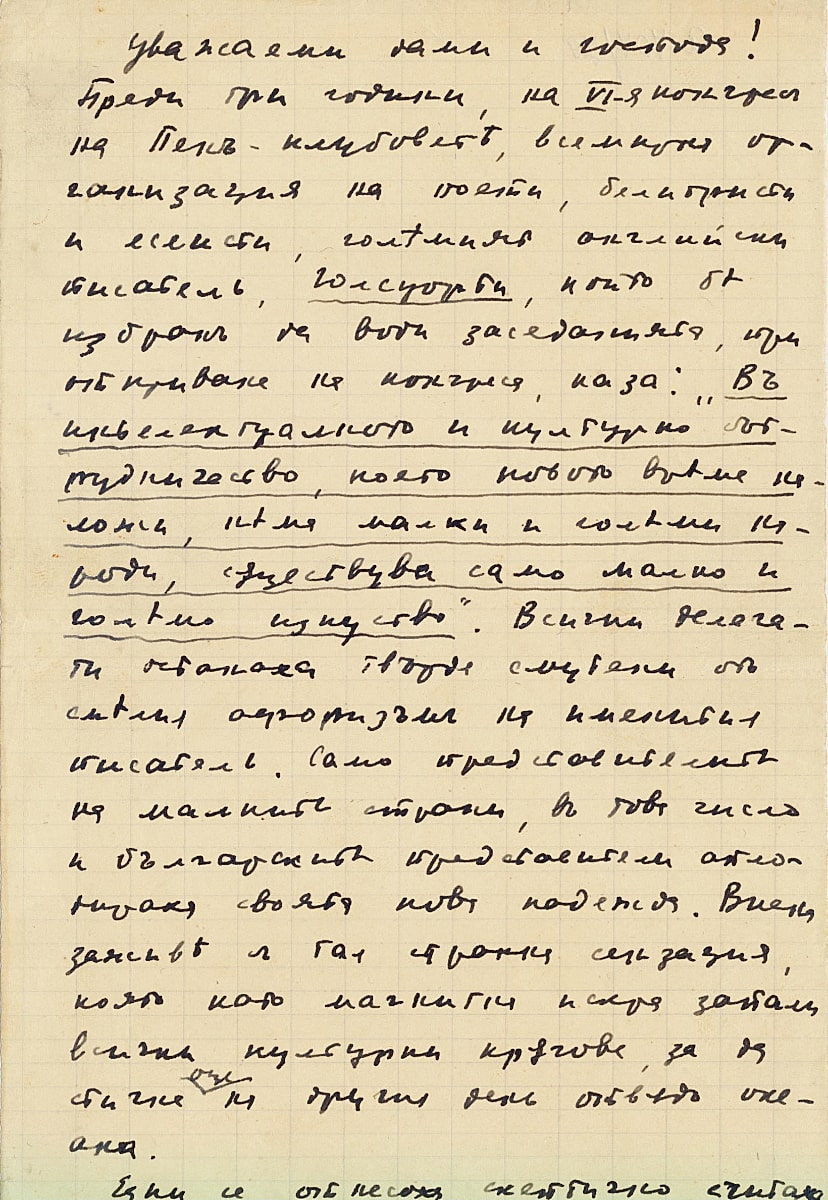 Уважаеми дами и господа!
Преди три години, на VI-я конгресъ
на Пенъ-клубоветѣ, всемирна ор-
ганизация на поети, белетристи
и есеисти, голѣмиятъ английски
писатель, Голсуорти, който бѣ
избранъ да води заседанията, при
откриване на конгреса, каза: „Въ
интелектуалното и културно сът-
рудничество, което новото врѣме на-
ложи, нѣма малки и голѣми на-
роди, сѫществува само малко и
голѣмо изкуство". Всички делега-
ти останаха твърде смутени отъ
смѣлия афоризъмъ на именития
писатель. Само представителитѣ
на малкитѣ страни, въ това число
и българскитѣ представители апло-
дираха своята нова надежда. Вмен
заживѣ с тая странна сензация,
която като магнитна искра запали
всички културни крѫгове, за да
стигне още на другия день отвъдъ оке-
ана.
Едни се отнесоха скептично считах